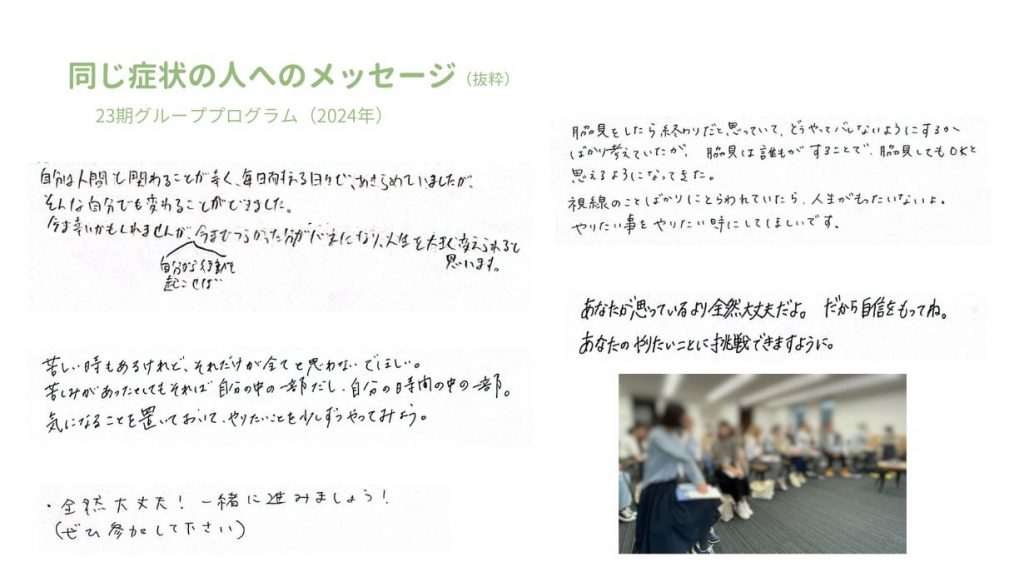 同じ症状の人へのメッセージ（抜粋）
23期グループプログラム（2024年）
自分は人間と関わることが辛く、毎日 日々で、あきらめていましたが、
そんな自分でも変わることができました。
今は辛いかもしれませんが、今までつらかった分がバネになり、人生を大きく変えられると
思います。
自分から行動を
起こせば
苦しい時もあるけれど、それだけが全てと思わないでほしい。
苦しみがあったとしてもそれは自分の中の一部だし、自分の時間の中の一部。
気になることを置いておいて、やりたいことを少しずつやってみよう。
・全然大丈夫！一緒に進みましょう！
（ぜひ参加して下さい）
脇見をしたら終わりだと思っていて、どうやってバレないようにするか
ばかり考えていたが、脇見は誰もがすることで、脇見してもOKと
思えるようになってきた。
視線のことばかりにとらわれていたら、人生がもったいないよ。
やりたい事をやりたい時にしてほしいです。
あなたが思っているより全然大丈夫だよ。だから自信をもってね。
あなたのやりたいことに挑戦できますように。